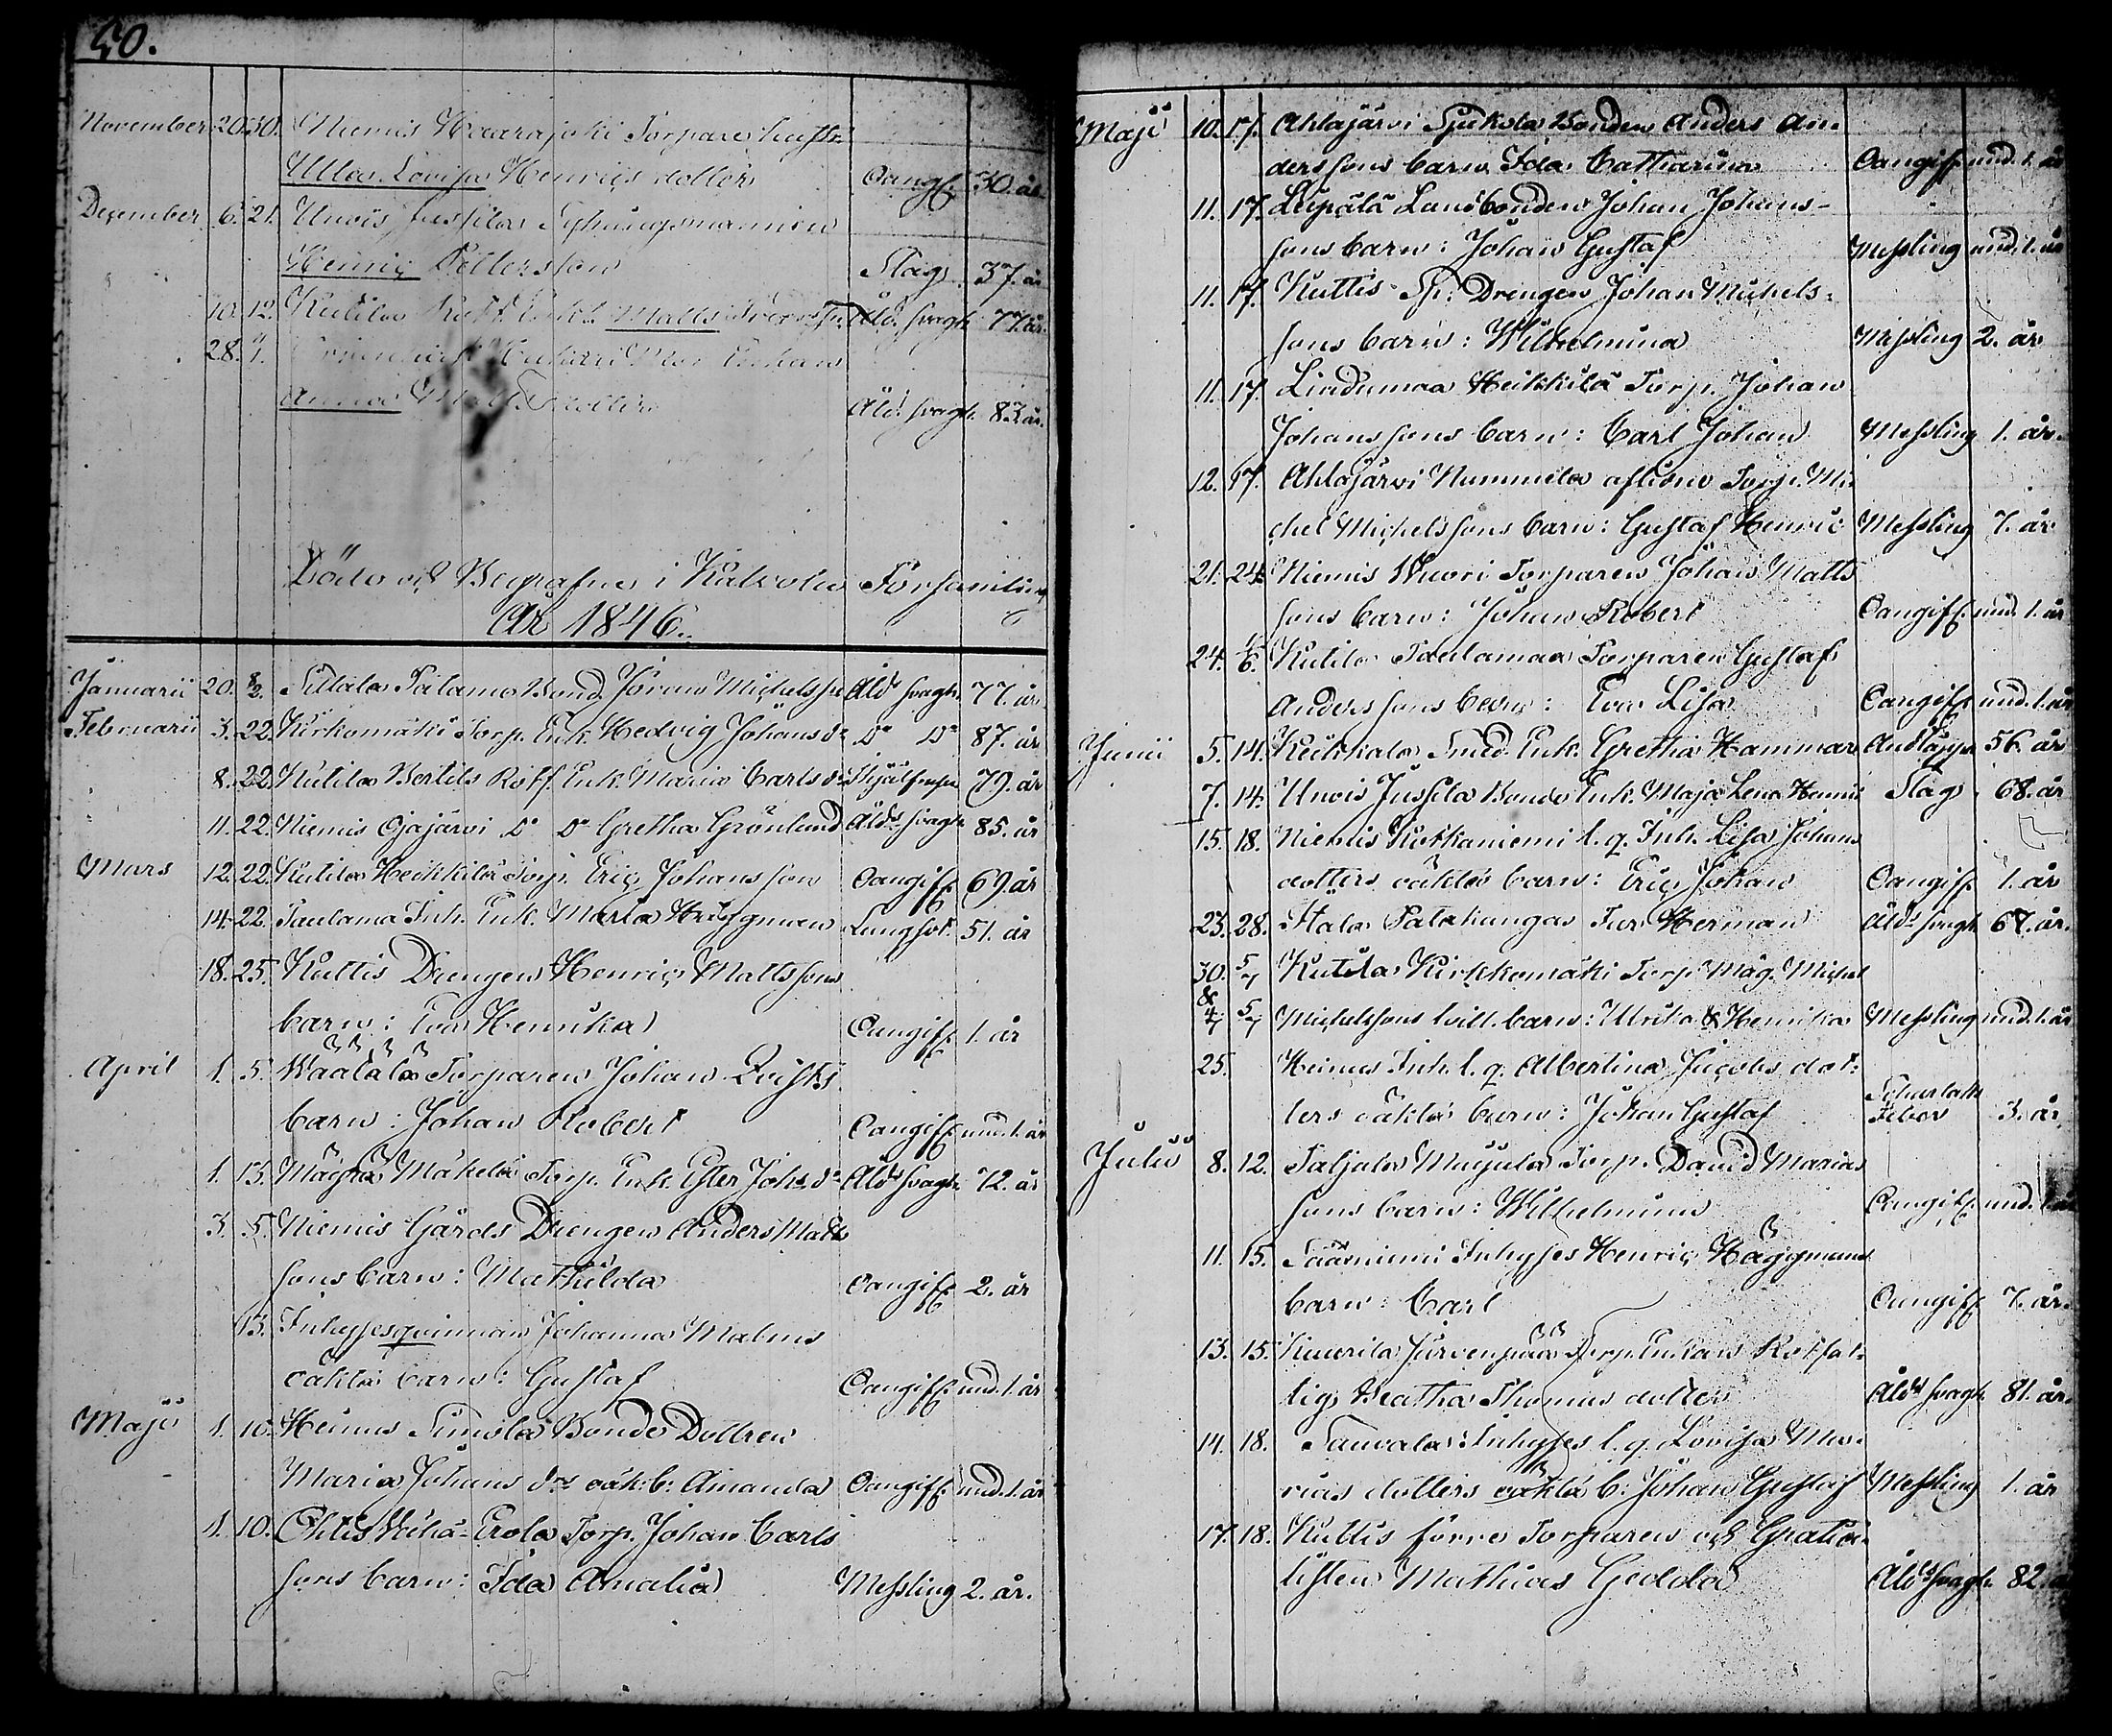 50.
November 20. 30. Niemis Haarajoki Torpare hustr.
Ulla Lovisa Henrics dotter Oangif. 30. år
December 6. 21. Unois Jussila
Henric Pettersson Slag 37. år
10. 12. Kutila Rotf. Enkl. Matts Åld. svagh. 77. år
28. Enkan
Anna dotter Åld. svagh. 83. år.
Döde och Begrafne i Kalvola Församling
År 1846.
Januarii 20. 8/2. Sittala Talama Bond. Jöran Michelsson Åld. svagh. 77. år
Februarii 3. 22. Kirkomäki Torp. Enk. Hedvig Johansdr Do Do 87. år
8. 22. Kutila Bertils Rotf. Enk. Maria Carlsdr 79. år
11. 22. Niemis Ojajärvi Do Do Gretha Grönlund Åld. svagh. 85. år
Mars 12. 22. Kutila Heikkilä Torp. Eric Johansson Oangif. 69. år
14. 22. Taulama Inh. Enk. Maria Häggman Lungsot. 51. år
18. 25. Kuttis Drengen Henric Mattssons
barn: Eva Henrika Oangif. 1. år
April 1. 5. Wäälälä Torparen Johan Qvists
barn: Johan Robert Oangif. und. 1. år
1. 13. Mäyrä Mäkelä Torp. Enk. Ester Joh. dr Åld. svagh. 72. år
3. 5. Niemis Gårds Drengen Anders Matts
sons barn: Mathilda Oangif. 2. år
13. Inhysesqvinnan Johanna Malms
oäkta barn: Gustaf Oangif. und. 1. år
Maji 1. 10. Heinus Simola Bonde Dottren
Maria Johans drs oäk. b: Amanda Oangif. und. 1. år
1. 10. Ohtis Vähä-Erola Torp. Johan Carls
sons barn: Ida Amalia Messling 2. år.
Maji 10. 17. Ahlajärvi Sjukola Bonden Anders An-
derssons barn Ida Catharina Oangif. und. 1. år
11. 17. Leipälä Landbonden Johan Johans-
sons barn: Johan Gustaf Messling und. 1. år
11. 17. Kuttis Sp: Drengen Johan Michels-
sons barn: Wilhelmina Messling 2. år
11. 17. Lindumaa Heikkilä Torp. Johan
Johanssons barn: Carl Johan Messling 1. år.
12. 17. Ahlajärvi Nummila aflidne Torp. Mi-
chel Michelssons barn: Gustaf Henric Messling 7. år
21. 24. Niemis Wuori Torparen Johan Matts
sons barn: Johan Robert Oangif. und. 1. år
24. 1/6. Kutila Taulamaa Torparen Gustaf
Anderssons barn: Eva Lisa Oangif. und. 1. år
Junii 5. 14. Keikkala Smed Enk. Gretha Hammar Andtäppa 56. år
7. 14. Unois Jussila Bonde Enk. Maja Lena Henrics Slag 68. år
15. 18. Niemis Kotkaniemi l. q. Inh. Lisa Johans
dotters oäkta barn: Eric Johan Oangif. 1. år
23. 28. Hala Patakangas Herman Åld. svagh. 67. år.
30. 5/7 Kutila Kirkkomäki Torp. Måg. Michel
& 4/7 5/7 Michelssons tvill. barn: Ulrika & Henrika Messling und. 1. år
25. Heinus Inh. l. q. Albertina Jacobs dot-
ters oäkta barn: Johan Gustaf Scharlaks Feber 3. år
Julii 8. 12. Taljala Marjula Torp. David Marias
sons barn: Wilhelmina Oangif. und. 1. år
11. 15. Sääniemi Inhyses Henric Häggmans
barn: Carl Oangif. 7. år.
13. 15. Kuurila Järvenpää Torp. Enkan Rotfat-
tig Beatha Thomas dotter Åld. svagh. 81. år.
14. 18. Sauvala Inhyses l. q. Lovisa Ma-
rias dotters oäkta b. Johan Gustaf Messling 1. år
17. 18. Kuttis förre Torparen och Gratia-
listen Mathias Gedda Åld. svagh. 82. år